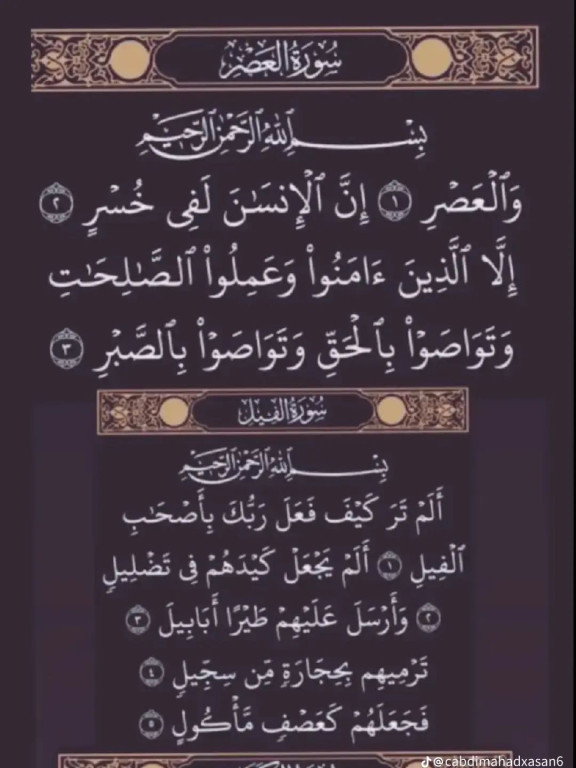 سُورَةُ العَصْرِ
بِسْمِ ٱللَّهِ ٱلرَّحْمَٰنِ ٱلرَّحِيمِ
وَٱلْعَصْرِ ١ إِنَّ ٱلْإِنسَٰنَ لَفِى خُسْرٍ ٢
إِلَّا ٱلَّذِينَ ءَامَنُوا۟ وَعَمِلُوا۟ ٱلصَّٰلِحَٰتِ
وَتَوَاصَوْا۟ بِٱلْحَقِّ وَتَوَاصَوْا۟ بِٱلصَّبْرِ ٣
سُورَةُ الفِيلِ
بِسْمِ ٱللَّهِ ٱلرَّحْمَٰنِ ٱلرَّحِيمِ
أَلَمْ تَرَ كَيْفَ فَعَلَ رَبُّكَ بِأَصْحَٰبِ
ٱلْفِيلِ ١ أَلَمْ يَجْعَلْ كَيْدَهُمْ فِى تَضْلِيلٍ
٢ وَأَرْسَلَ عَلَيْهِمْ طَيْرًا أَبَابِيلَ ٣
تَرْمِيهِم بِحِجَارَةٍ مِّن سِجِّيلٍ ٤
فَجَعَلَهُمْ كَعَصْفٍ مَّأْكُولٍ ٥
@cabdimahadxasan6